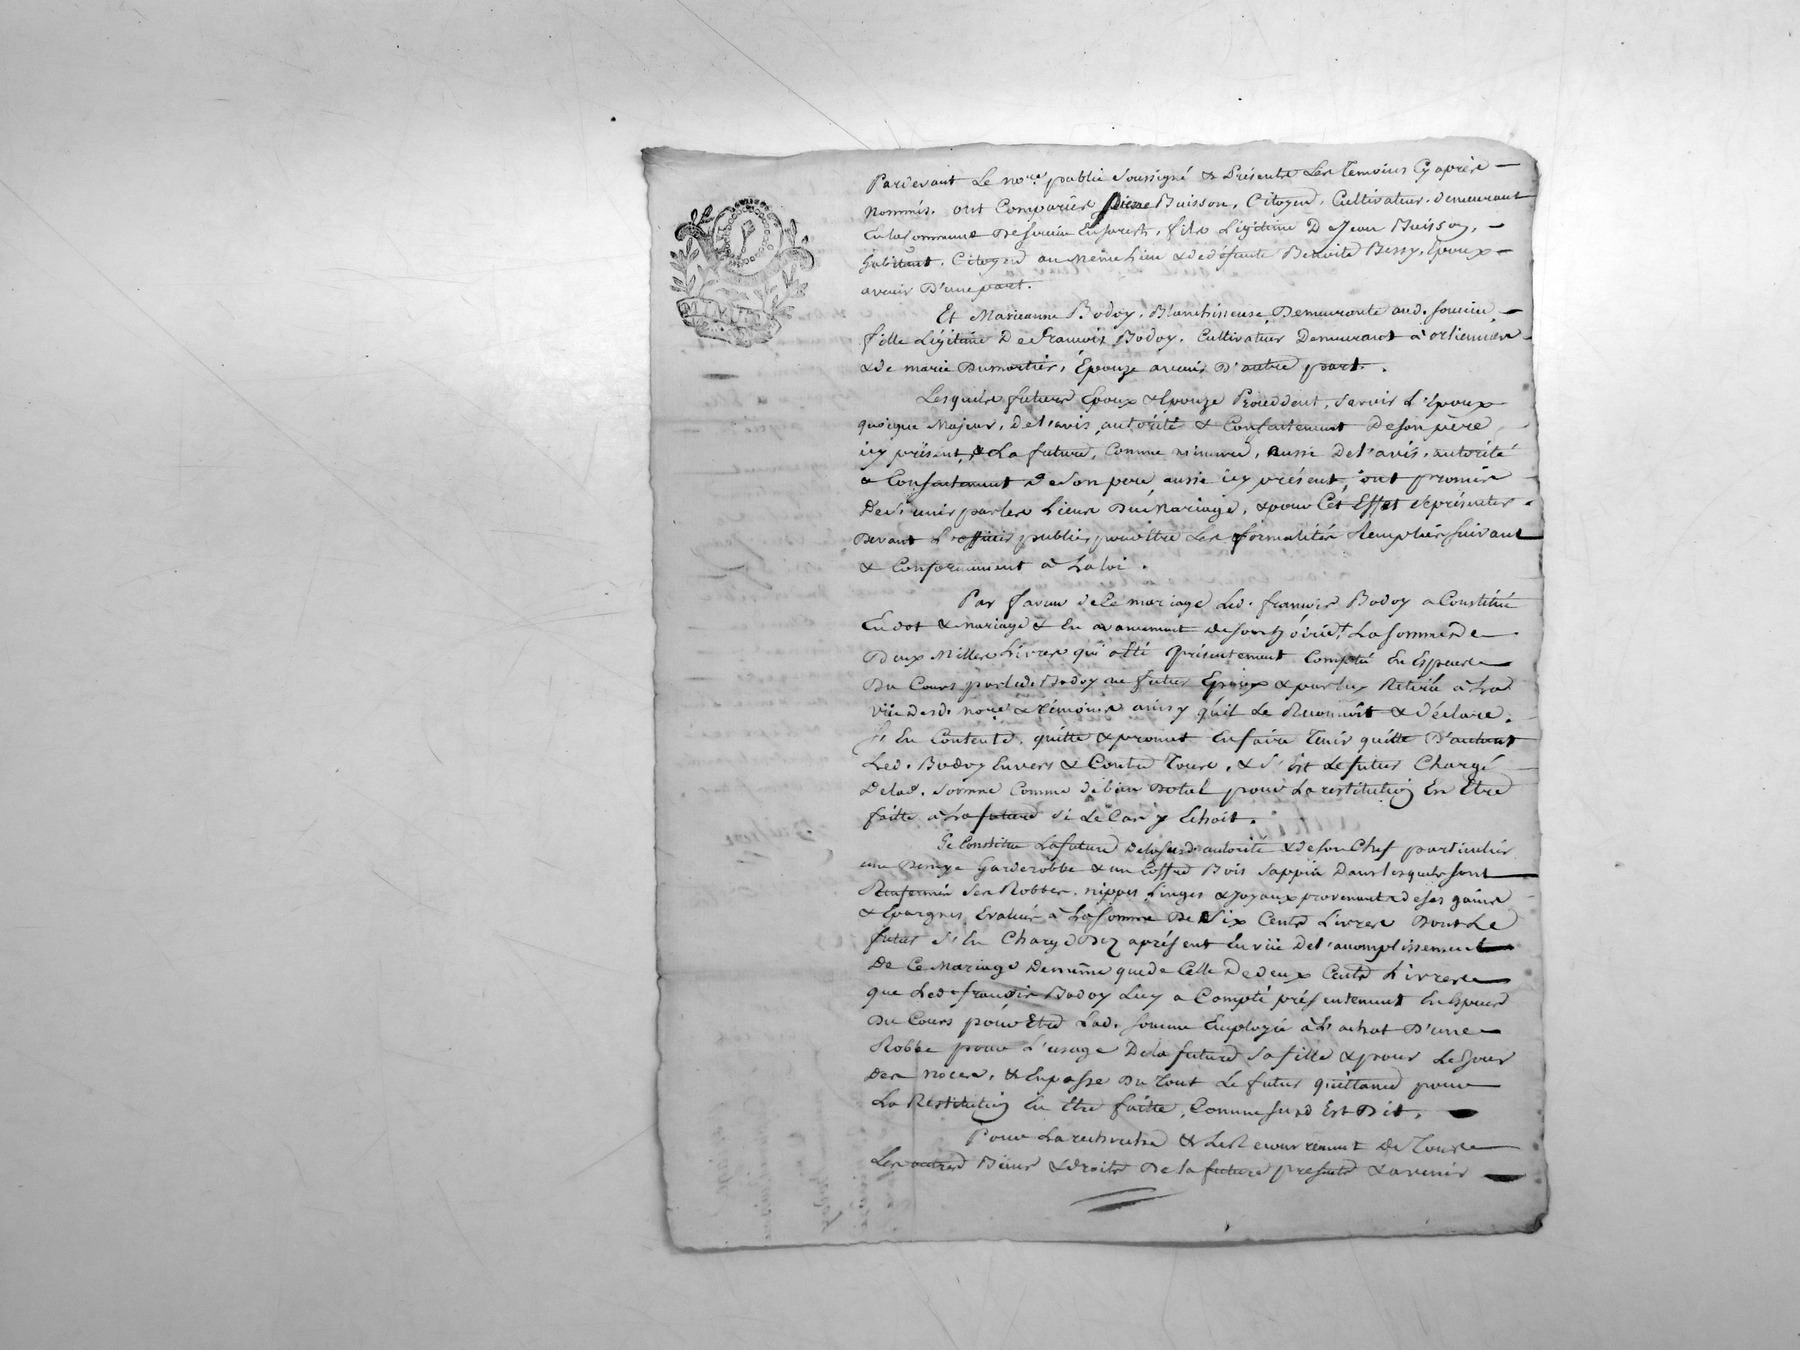 Pardevant Le no.re public soussigné & Présents Les Temoins Cy après
nommés. ont Comparûs pierre Buisson, Citoyen, Cultivateur, demeurant
En la Commune de Soucieu En Jarest, fils Légitime De Jean Buisson,
habitant, Citoyen au meme Lieu & de défunte Benoite Bessy, Epoux
avenir D'une part.
Et Marieanne Bodoy, Blanchisseuse, Demeurante aud. soucieu,
fille Légitime De François Bodoy, Cultivateur Demeurant à orlienas
& de marie Dumortier, Epouze avenir D'autre part.
Lesquels futurs Epoux & Epouze Proceddent, savoir L'Epoux
quoique Majeur, de l'avis, autorité & Consentement De son père
icy présent, & La future, Comme mineure, aussi De l'avis, autorité
& Consentement De son pere, aussi icy présent, ont promis
De s'unir par les Liens Du Mariage, & pour Cet Effet se présenter
Devant L'officier public, pour Etre Les formalités Remplies suivant
& Conformement à La loi.
Par faveur de Ce mariage Led. françois Bodoy a Constitué
En dot & mariage & En avancement de son hoirie La somme de
Deux Milles Livres qui a Eté présentement Compté En Especes
Du Cours par led. Bodoy au futur Epoux & par luy Retirée à La
vüe desd. no.re & témoins ainsy qu'il Le Reconnoit & déclare.
S'En Contente, quitte & promet En faire Tenir quitte D'autant
Led. Bodoy Envers & Contre Tous, & s'est Le futur Chargé
De lad. somme Comme de bien Dotal pour La restitution En Etre
faitte à La future si Le Cas y Echoit.
Se Constitue La future de la susd. autorité & de son Chef particulier
une Garderobbe & un Coffre Bois sappin Dans lesquels sont
Renfermés ses Robbes, nippes Linges & Joyaux provenants de ses gains
& Epargnes, Evalués à La somme De Six Cents Livres Dont Le
futur s'En Charge Dez aprésent En vüe de l'accomplissement
De Ce Mariage De même que de Celle De deux Cents Livres
que Led. françois Bodoy Luy a Compté présentement En Especes
Du Cours pour Etre Lad. somme Employée à L'achat D'une
Robbe pour L'usage De la future sa fille & pour Le Jour
des noces, & En passe Du Tout Le futur quittance pour
La Restitution En Etre faitte, Comme susd. Est Dit.
Pour La recherche & Le Recouvrement De Tous
Les autres Biens & droits De la future presents & avenir